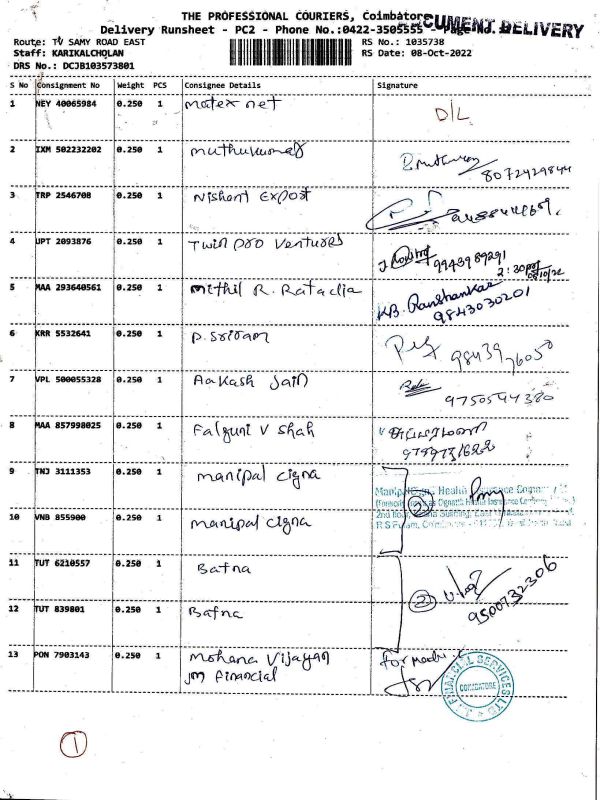 THE PROFESSIONAL COURIERS, Coimbatore
DOCUMENT DELIVERY
Delivery Runsheet - PC2 - Phone No.:0422-3505555 - Page No.
Route: TV SAMY ROAD EAST
RS No.: 1035738
Staff: KARIKALCHOLAN
RS Date: 08-Oct-2022
DRS No.: DCJB103573801
S No Consignment No Weight PCS Consignee Details Signature
1 NEY 40065984 0.250 1 Matex net D/L
2 IXM 502232202 0.250 1 Muthukumar 8072429844
3 TRP 2546708 0.250 1 Nishant Export
4 UPT 2093876 0.250 1 Twin pro Ventures 9943989291
2:30pm
08/10/22
5 MAA 293640561 0.250 1 Mithil R. Ratadia KB. Ravishankar
9843030201
6 KRR 5532641 0.250 1 P. Sriram 9843976050
7 VPL 500055328 0.250 1 Aakash Jain 9750544380
8 MAA 857998025 0.250 1 Falguni V Shah
9 TNJ 3111353 0.250 1 Manipal cigna
10 VNB 855900 0.250 1 Manipal cigna
11 TUT 6210557 0.250 1 Bafna
12 TUT 839801 0.250 1 Bafna 9500732306
13 PON 7903143 0.250 1 Mohana Vijayan
JM Financial
FINANCIAL SERVICES LTD
COIMBATORE
1